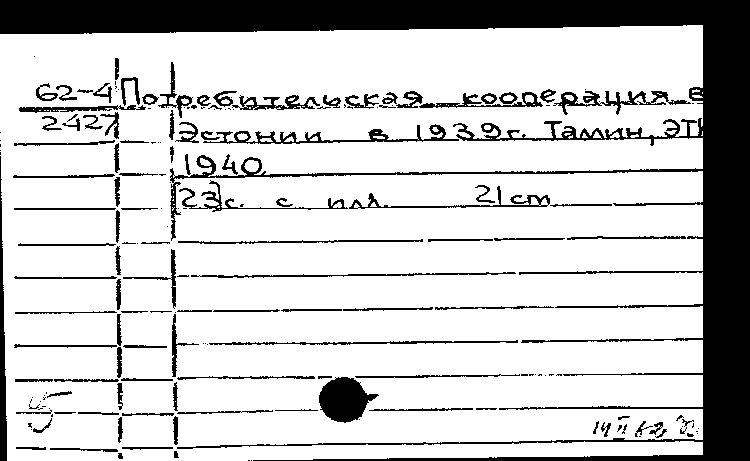 62-4 Потребительская кооперация в
2427 Эстонии в 1939г. Таллин, ЭТК
1940
[23]с. с илл. 21 cm
5
14 II 62